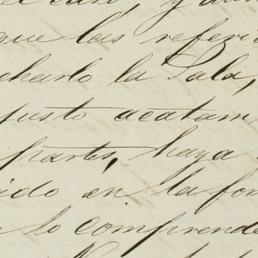 que las referi
charlo la Sala,
justo acatam
partes, haya
ido en la for
lo comprende